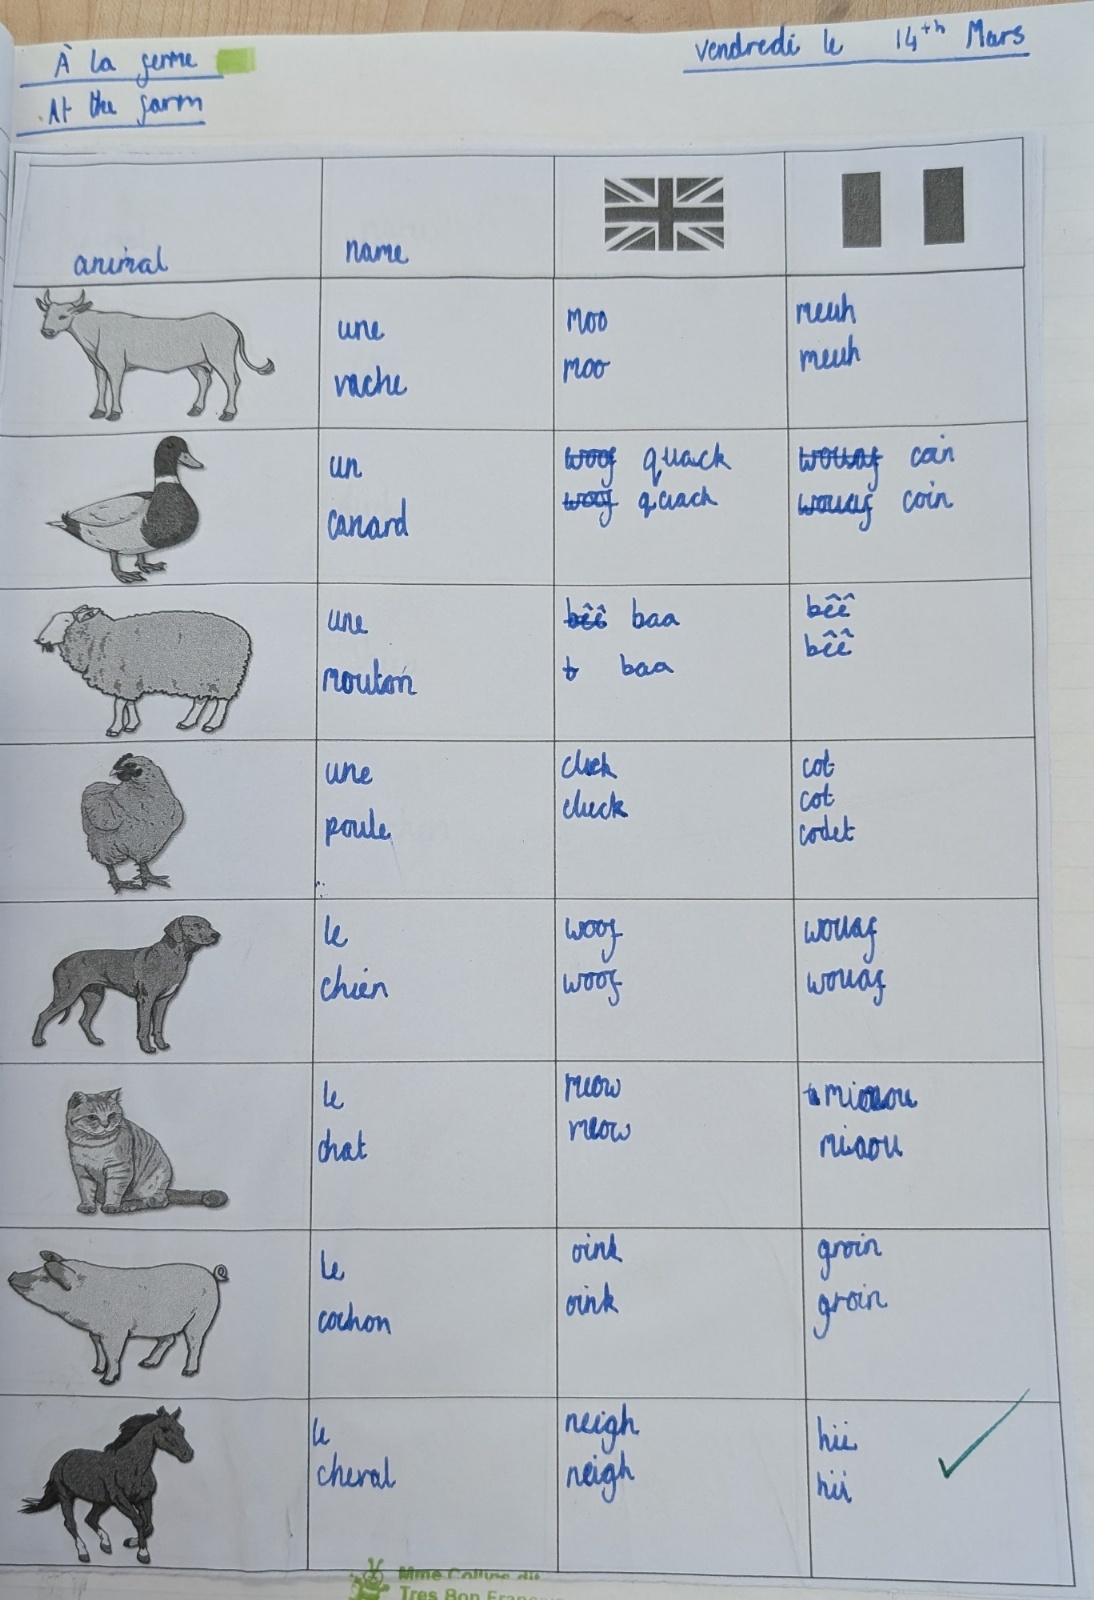 À la ferme
vendredi le 14th Mars
At the farm
animal
name
une
vache
moo
moo
meuh
meuh
un
canard
woof quack
woof quack
wouaf coin
wouaf coin
une
mouton
bêê baa
b baa
bêê
bêê
une
poule
cluck
cluck
cot
cot
codet
le
chien
woof
woof
wouaf
wouaf
le
chat
meow
meow
miaou
miaou
le
cochon
oink
oink
groin
groin
le
cheval
neigh
neigh
hii
hii
Mme
Tres Bon